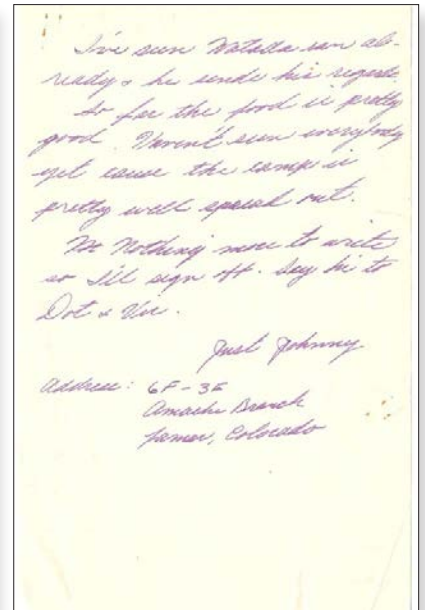 I've seen Watada san al-
ready & he sends his regards.
So far the food is pretty
good. Haven't seen everybody
yet cause the camp is
pretty well spread out.
Nothing more to write
so I'll sign off. Say hi to
Dot & Viv.
Just Johnny
Address: 6F-3E
Amache Branch
Lamar, Colorado